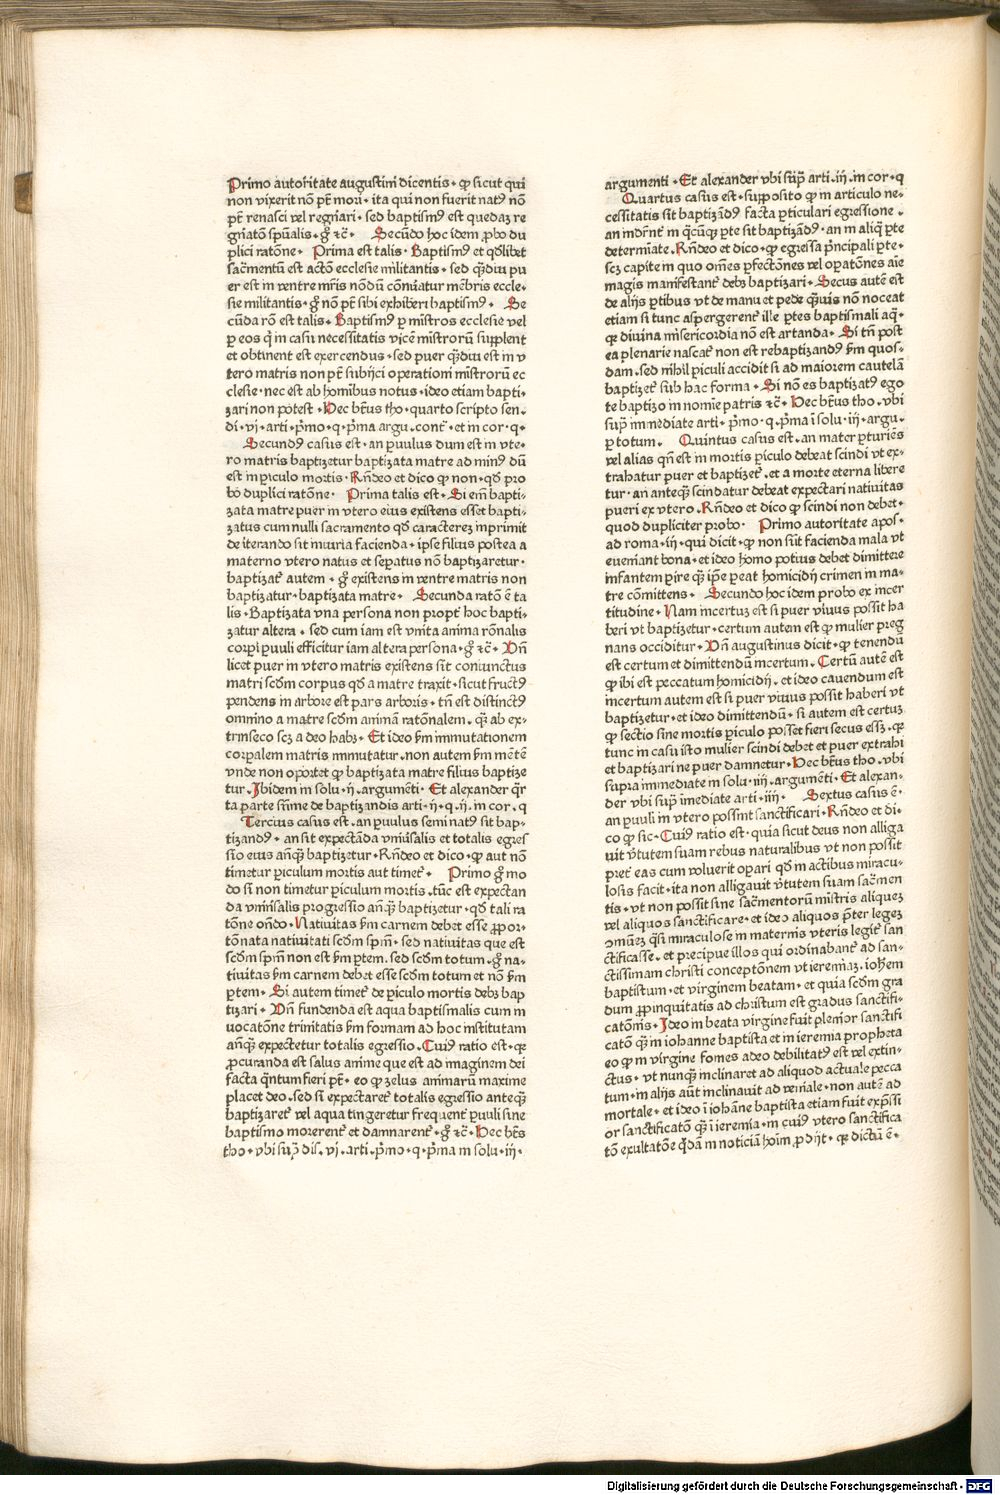 Primo autoritate augustini dicentis · ꝙ sicut qui
non vixerit nō pt̄ mori · ita qui non fuerit natꝰ nō
pt̄ renasci vel regn̄ari · sed baptismꝰ est quedaz re
gn̄atō spūalis · gͦ ⁊c̄ · Secūdo hoc idem ꝓbo du
plici ratōne · Prima est talis · Baptismꝰ et qd̓libet
sac̄mentū est actō ecclesie militantis · sed qᷓdiu pu
er est in ventre mr̄is nōdū cōnūatur mēbris eccle·
sie militantis · gͦ nō pt̄ sibi exhiberi baptismꝰ · Se
cūda rō est talis · Baptismꝰ ꝑ mīstros ecclesie vel
ꝑ eos qͥ in casu necessitatis vicē mīstrorū supplent
et obtinent est exercendus · sed puer qᷓdiu est in v
tero matris non pt̄ subijci operationi mīstrorū ec
clesie · nec est ab homībus notus · ideo etiam bapti·
zari non potest · Hec bt̄us tho · quarto scripto sen·
di · vj · arti · pͥmo · q · pͥma argu · cont̄ · et in cor · q ·
Secundꝰ casus est · an ꝑuulus dum est in vte·
ro matris baptizetur baptizata matre ad minꝰ dū
est in ꝑiculo mortis · Rn̄deo et dico ꝙ non · qd̓ pro
bo duplici ratōne · Prima talis est · Si em̄ bapti·
zata matre puer in vtero eius existens esset bapti·
zatus cum nulli sacramento qd̓ caracterez inprimit
de iterando sit iniuria facienda · ipse filius postea a
materno vtero natus et seꝑatus nō baptizaretur ·
baptizat᷑ autem · gͦ existens in ventre matris non
baptizatur · baptizata matre · Secunda ratō ē ta
lis · Baptizata vna persona non propt̓ hoc bapti·
zatur altera · sed cum iam est vnita anima rōnalis
corꝑi puuli efficitur iam altera persona · gͦ ⁊c̄ · Vn̄
licet puer in vtero matris existens sit coniunctus
matri scdm̄ corpus qd̓ a matre traxit · sicut fructꝰ
pendens in arbore est pars arboris · tn̄ est distinctꝰ
omnino a matre scdm̄ animā ratōnalem · qᷓ ab ex·
trinseco scz a deo habz · Et ideo ẜm inmutationem
corꝑalem matris inmutatur · non autem ẜm mētē
vnde non oportet ꝙ baptizata matre filius baptize
tur · Ibidem in solu · ij · argumēti · Et alexander qͣr
ta parte sūme de baptizandis arti · ij · q · ij · in cor · q
Tercius casus est · an ꝑuulus semi natꝰ sit bap·
tizandꝰ · an sit expectāda vniūsalis et totalis egres
sio eius anqᷓ baptizetur · Rn̄deo et dico · ꝙ aut nō
timetur ꝑiculum mortis aut timet᷑ · Primo gͦ mo
do si non timetur ꝑiculum mortis · tūc est expectan
da vniūsalis progressio anqᷓ baptizetur · qd̓ tali ra
tōne on̄do · Natiuitas ẜm carnem debet esse ꝓpor·
tōnata natiuitati scdm̄ spm̄ · sed natiuitas que est
scdm̄ spm̄ non est ẜm ꝑtem · sed scdm̄ totum · gͦ na·
tiuitas ẜm carnem debet esse scdm̄ totum et nō ẜm
ꝑtem · Si autem timet᷑ de ꝑiculo mortis debz bap
tizari · Vn̄ fundenda est aqua baptismalis cum in
uocatōne trinitatis ẜm formam ad hoc institutam
anqᷓ expectetur totalis egressio · Cuiꝰ ratio est · qꝛ
ꝓcuranda est salus anime que est ad imaginem dei
facta qͣntum fieri pt̄ · eo ꝙ zelus animarū maxime
placet deo · sed si expectaret᷑ totalis egressio anteqᷓ
baptizaret᷑ vel aqua tingeretur frequent̓ ꝑuuli sine
baptismo morerent᷑ et damnarent᷑ · gͦ ⁊c̄ · Hec bt̄s
tho · vbi supͣ dis · vj · arti · pͥmo · q · pͥma in solu · iij ·
argumenti · Et alexander vbi supͣ arti · iij · in cor · q
Quartus casus est · supposito ꝙ in articulo ne·
cessitatis sit baptizādꝰ facta ꝑticulari egressione ·
an indr̄nt̓ in qͣcūqꝫ ꝑte sit baptizādꝰ · an in aliqͣ ꝑte
determīate · Rn̄deo et dico · ꝙ egressa pͥncipali ꝑte ·
scz capite in quo om̄es ꝑfectōnes vel oꝑatōnes aīe
magis manifestant᷑ debz baptizari · Secus autē est
de alijs ꝑtibus vt de manu et pede qᷓuis nō noceat
etiam si tunc aspergerent᷑ ille ꝑtes baptismali aqͣ ·
qꝛ diuina misericordia nō est artanda · Si tn̄ post
ea plenarie nascat᷑ non est rebaptizandꝰ ẜm quos·
dam · sed nihil ꝑiculi accidit si ad maiorem cautelā
baptizet᷑ sub hac forma · Si nō es baptizatꝰ ego
te baptizo in nomīe patris ⁊c̄ · Hec bt̄us tho · vbi
supͣ inmediate arti · pͥmo · q · pͥma ī solu · iij · argu ·
ꝑ totum · Quintus casus est · an mater ꝑturiēs
vel alias qn̄ est in mortis ꝑiculo debeat scindi vt ex·
trahatur puer et baptizet᷑ · et a morte eterna libere
tur · an anteqᷓ scindatur debeat expectari natiuitas
pueri ex vtero · Rn̄deo et dico ꝙ scindi non debet ·
quod dupliciter probo · Primo autoritate apos·
ad roma · iij · qui dicit · ꝙ non sūt facienda mala vt
eueniant bona · et ideo homo potius debet dimittere
infantem ꝑire qᷓ ip̄e ꝑeat homicidij crimen in ma·
tre cōmittens · Secundo hoc idem probo ex incer
titudine · Nam incertuz est si puer viuus possit ha
beri vt baptizetur · certum autem est ꝙ mulier p̄g
nans occiditur · Vn̄ augustinus dicit · ꝙ tenendū
est certum et dimittendū incertum · Certū autē est
ꝙ ibi est peccatum homicidij · et ideo cauendum est
incertum autem est si puer viuus possit haberi vt
baptizetur · et ideo dimittendū · si autem est certuz
ꝙ sectio sine mortis ꝑiculo posset fieri secus essz · qꝛ
tunc in casu isto mulier scindi debet et puer extrahi
et baptizari ne puer damnetur · Hec bt̄us tho · vbi
supra inmediate in solu · iiij · argumēti · Et alexan·
der vbi supͣ imediate arti · iiij · Sextus casus ē ·
an ꝑuuli in vtero possint sanctificari · Rn̄deo et di·
co ꝙ sic · Cuiꝰ ratio est · quia sicut deus non alliga
uit v̓tutem suam rebus naturalibus vt non possit
pret̓ eas cum voluerit oꝑari qd̓ in actibus miracu·
losis facit · ita non alligauit v̓tutem suam sac̄men
tis · vt non possit sine sac̄mentorū mīstris aliquez
vel aliquos sanctificare · et ideo aliquos p̄ter legez
ꝯmūez qͣsi miraculose in maternis vteris legit᷑ san
ctificasse · et precipue illos qui ordinabant᷑ ad san·
ctissimam christi conceptōnem vt ieremiaz · iohem̄
baptistum · et virginem beatam · et quia scdm̄ gra
dum ꝓpinquitatis ad christum est gradus sanctifi·
catōnis · Ideo in beata virgine fuit plenior sanctifi
catō qᷓ in iohanne baptista et in ieremia propheta
eo ꝙ in virgine fomes adeo debilitatꝰ est vel extin·
ctus · vt nunqᷓ inclinaret ad aliquod actuale pecca
tum · in alijs aūt inclinauit ad veniale · non autē ad
mortale · et ideo ī iohāne baptista etiam fuit exp̄ssi
or sanctificatō qᷓ ī ieremia · in cuiꝰ vtero sanctifica
tō exultatōe qͣdā in noticiā hoīm ꝓdijt · qꝛ dictū ē ·
Digitalisierung gefördert durch die Deutsche Forschungsgemeinschaft - DFG